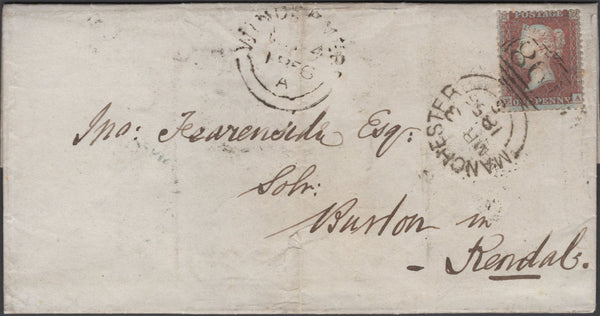 WINDERMERE
1856
A
POSTAGE
ONE PENNY
MANCHESTER
MR 3
1856
Jno: Fearenside Esq:
Solr:
Burton in
Kendal.